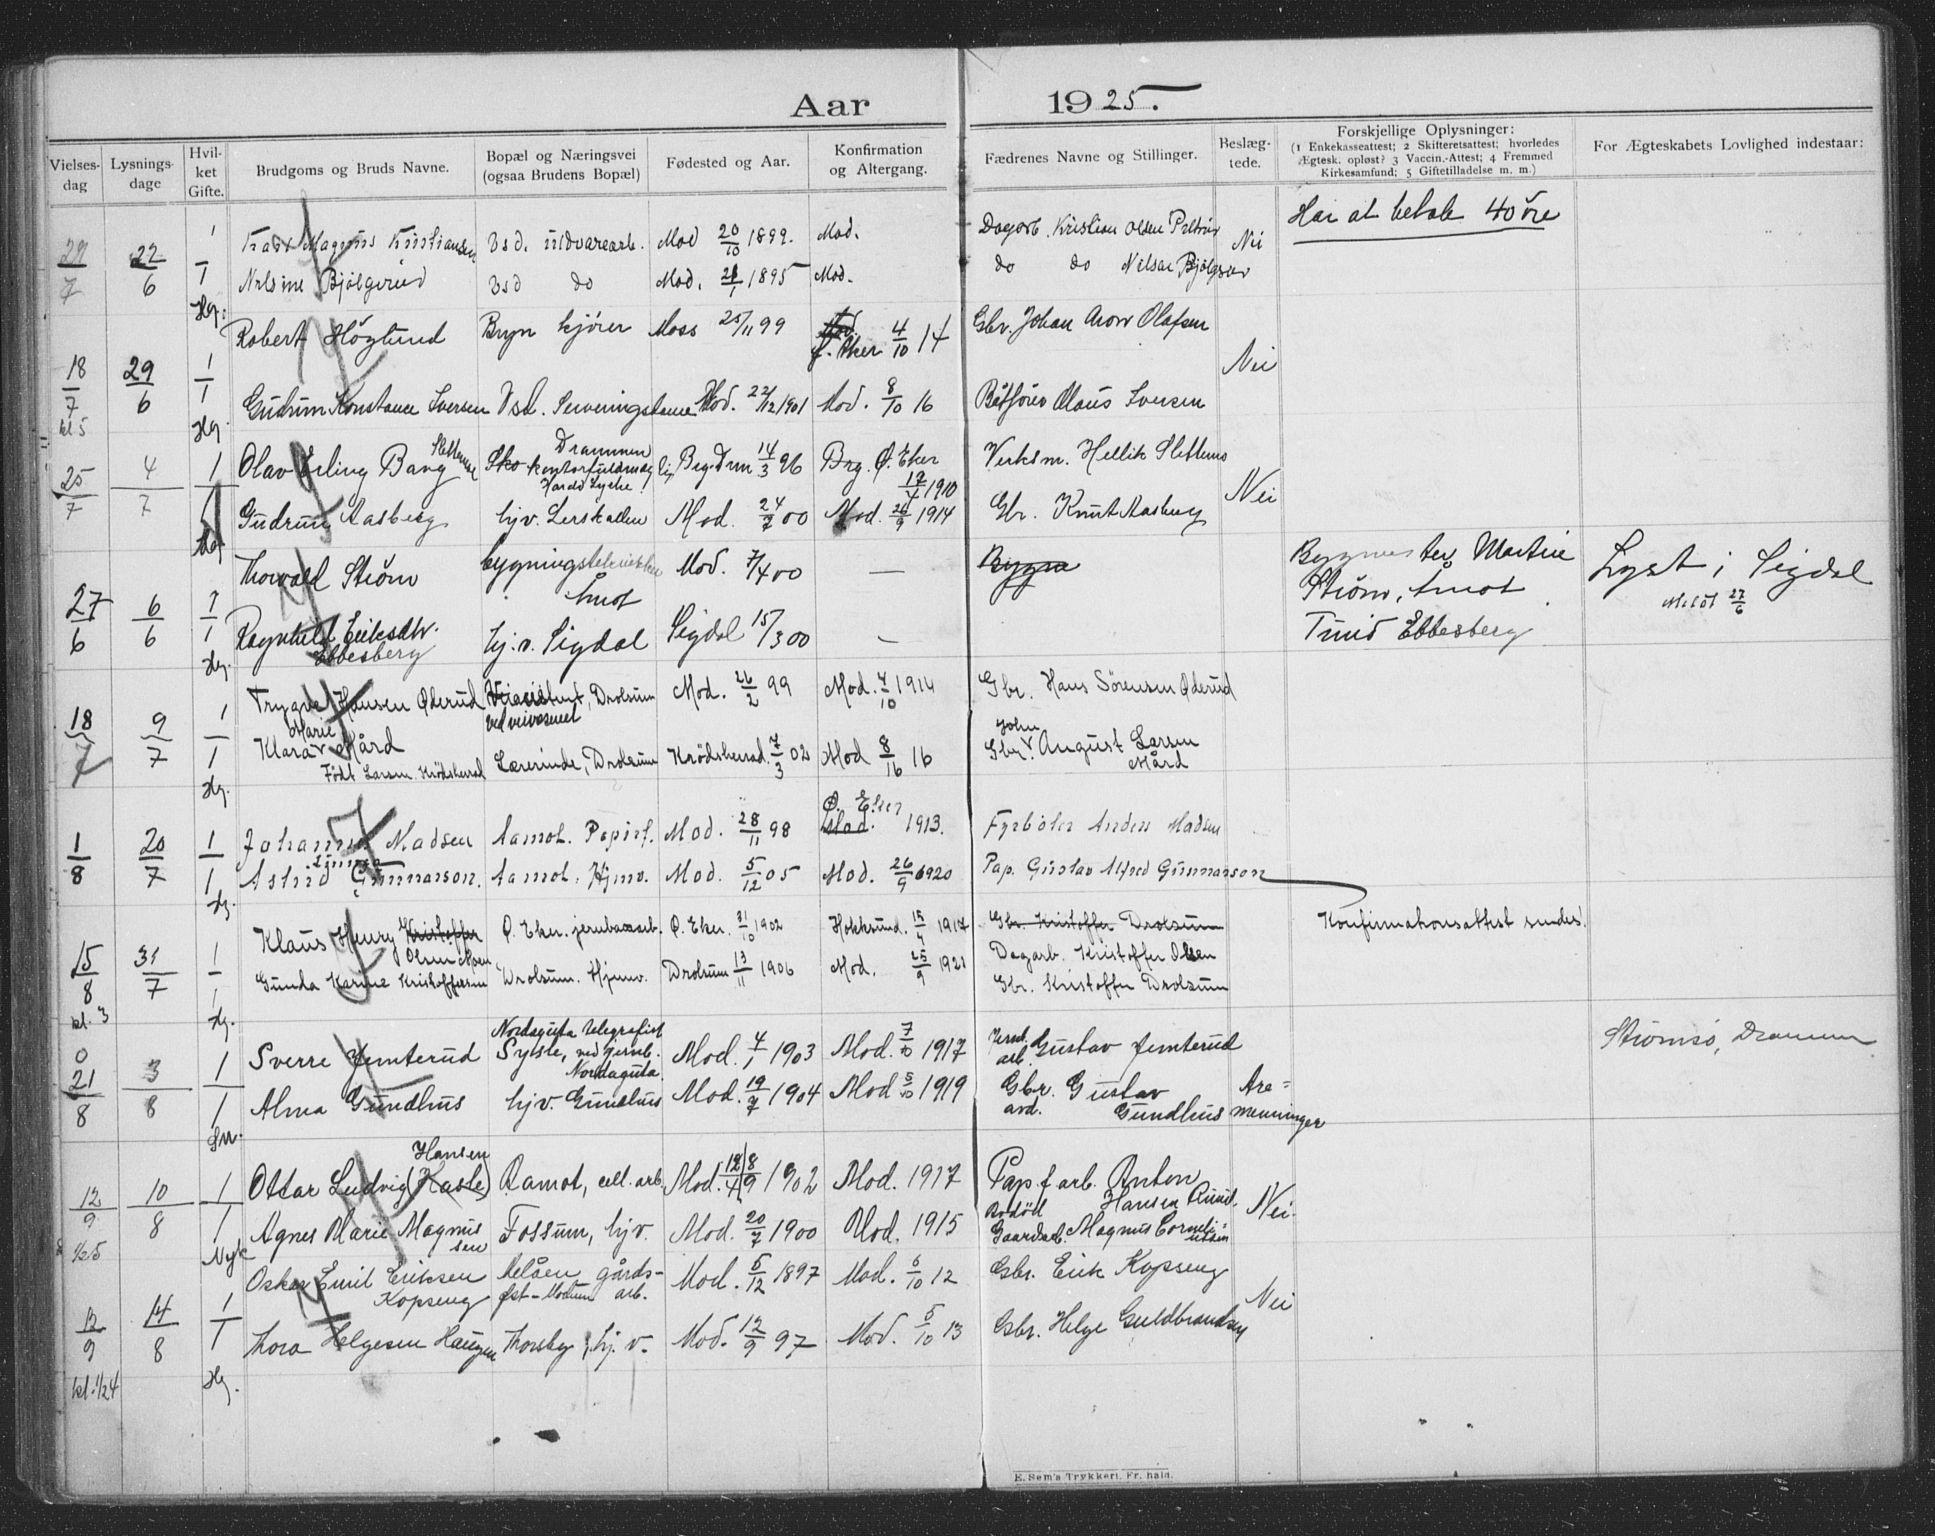 Aar 1925.
Vielses-dag Lysnings-dage Hvil-ket Gifte. Brudgoms og Bruds Navne. Bopæl og Næringsvei (ogsaa Brudens Bopæl) Fødested og Aar. Konfirmation og Altergang. Fædrenes Navne og Stillinger. Beslæg-tede. Forskjellige Oplysninger: (1 Enkekasseattest; 2 Skifteretsattest; hvorledes Ægtesk. opløst? 3 Vaccin.-Attest; 4 Fremmed Kirkesamfund; 5 Giftetilladelse m. m.) For Ægteskabets Lovlighed indestaar:
Har at betale 40 öre
22/6 1 Magnus Kristiansen Vsd. Mod 20/10 1899. Mod. Kristian Olsen Nei
7 1 Nilsine Bjölgerud Vsd do Mod. 1895 Mod. do do
Hg.
Robert Höglund Bryn kjörer Moss 25/11 99 Ö. Eker 4/10 14 Gbr. Johan Aron Olafsen
18/7 29/6 1/1 Nei
kl 5 Gudrun Konstance Iversen Vsd. Serveringsdame Mod. 22/12 1901 Mod. 8/10 16 Claus Iversen
Hg.
25/7 4/7 1 Olav Erling Bang Slettemo Drammen kontorfuldmægtig Brg. Drm 14/3 96 Brg. Ö. Eker 1910 Verksm. Hellik Slettemo Nei
Gudrun Aasberg hjv. Lerskallen Mod. 24/7 00 Mod. 26/9 1914 Gbr. Knut Aasberg
Thorvald Ström bygningstekniker Åmot Mod. 7/4 00 — Bygm Bygmester Martin Ström, Åmot Lyst i Sigdal
27/6 6/6 1 Meldt 27/6
Ragnhild Eriksdtr. Ebbesberg hj. v. Sigdal Sigdal 15/3 00 — Ebbesberg
Hg.
18/7 9/7 1 Trygve Hansen Öderud Drolsum ved veivæsenet Mod. 26/2 99 Mod. 4/10 1914 Gbr. Hans Sörensen Öderud
1 Klara Marie Mård Født Larsen Krödsherad Lærerinde, Drolsum Krödsherad 7/3 02 Mod 8/16 16 Gbr. John August Larsen Mård
Hg.
1/8 20/7 1 Johannes Madsen Aamot. Papirf. Mod. 28/11 98 Ö. Eker Mod. 1913. Fyrböter Anders Madsen
1 Astrid Gunnarson. Aamot. Hjmv. Mod. 5/12 05 Mod. 26/9 1920 Pap. Gustav Alfred Gunnarson
Hg.
Klaus Henry Kristoffer Olsen Moen Ö. Eker. Ö. Eker. 31/10 1902 Hokksund. 15/4 1917 Gbr. Kristoffer Drolsum Konfirmationsattest sendes.
15/8 31/7 1 Dagarb. Kristoffer Olsen
kl. 3 1 Gunda Karine Kristoffersen Drolsum. Hjmv. Drolsum 13/11 1906 Mod. 25/9 1921 Gbr. Kristoffer Drolsum
Hg.
21/8 3/8 1 Sverre Jemterud Nordagutu telegrafist Sysle, ved jernb. Nordagutu Mod. 4/1 1903 Mod. 7/10 1917 arb. Gustav Jemterud Strömsö, Drammen
1 Alma Gundhus hjv. Gundhus Mod. 19/7 1904 Mod 5/10 1919 Gbr. Gustav Gundhus Are-menninger
12/9 10/8 1 Ottar Ludvig Hansen (Kaste) Aamot, cell. arb. Mod. 8/9 1902 Mod. 1917 Pap. f. arb. Anton Hansen Ruud. Nei.
1 Agnes Marie Magnussen Fossum, hjv. Mod. 20/7 1900 Mod. 1915 Gaardarb. Magnus
Nyk
Oskar Emil Eriksen Kopseng gårds-arb. Öst-Modum Mod. 5/12 1897 Mod. 6/10 12 Gbr. Erik Kopseng Nei
12/9 14/8 1/1 Thora Helgesen Haugen Thorsby, hj. v. Mod. 12/9 97 Mod. 5/10 13 Gbr. Helge Guldbrandsen
kl. 1/2 4 Hg.
E. Sem's Trykkeri, Fr. hald.